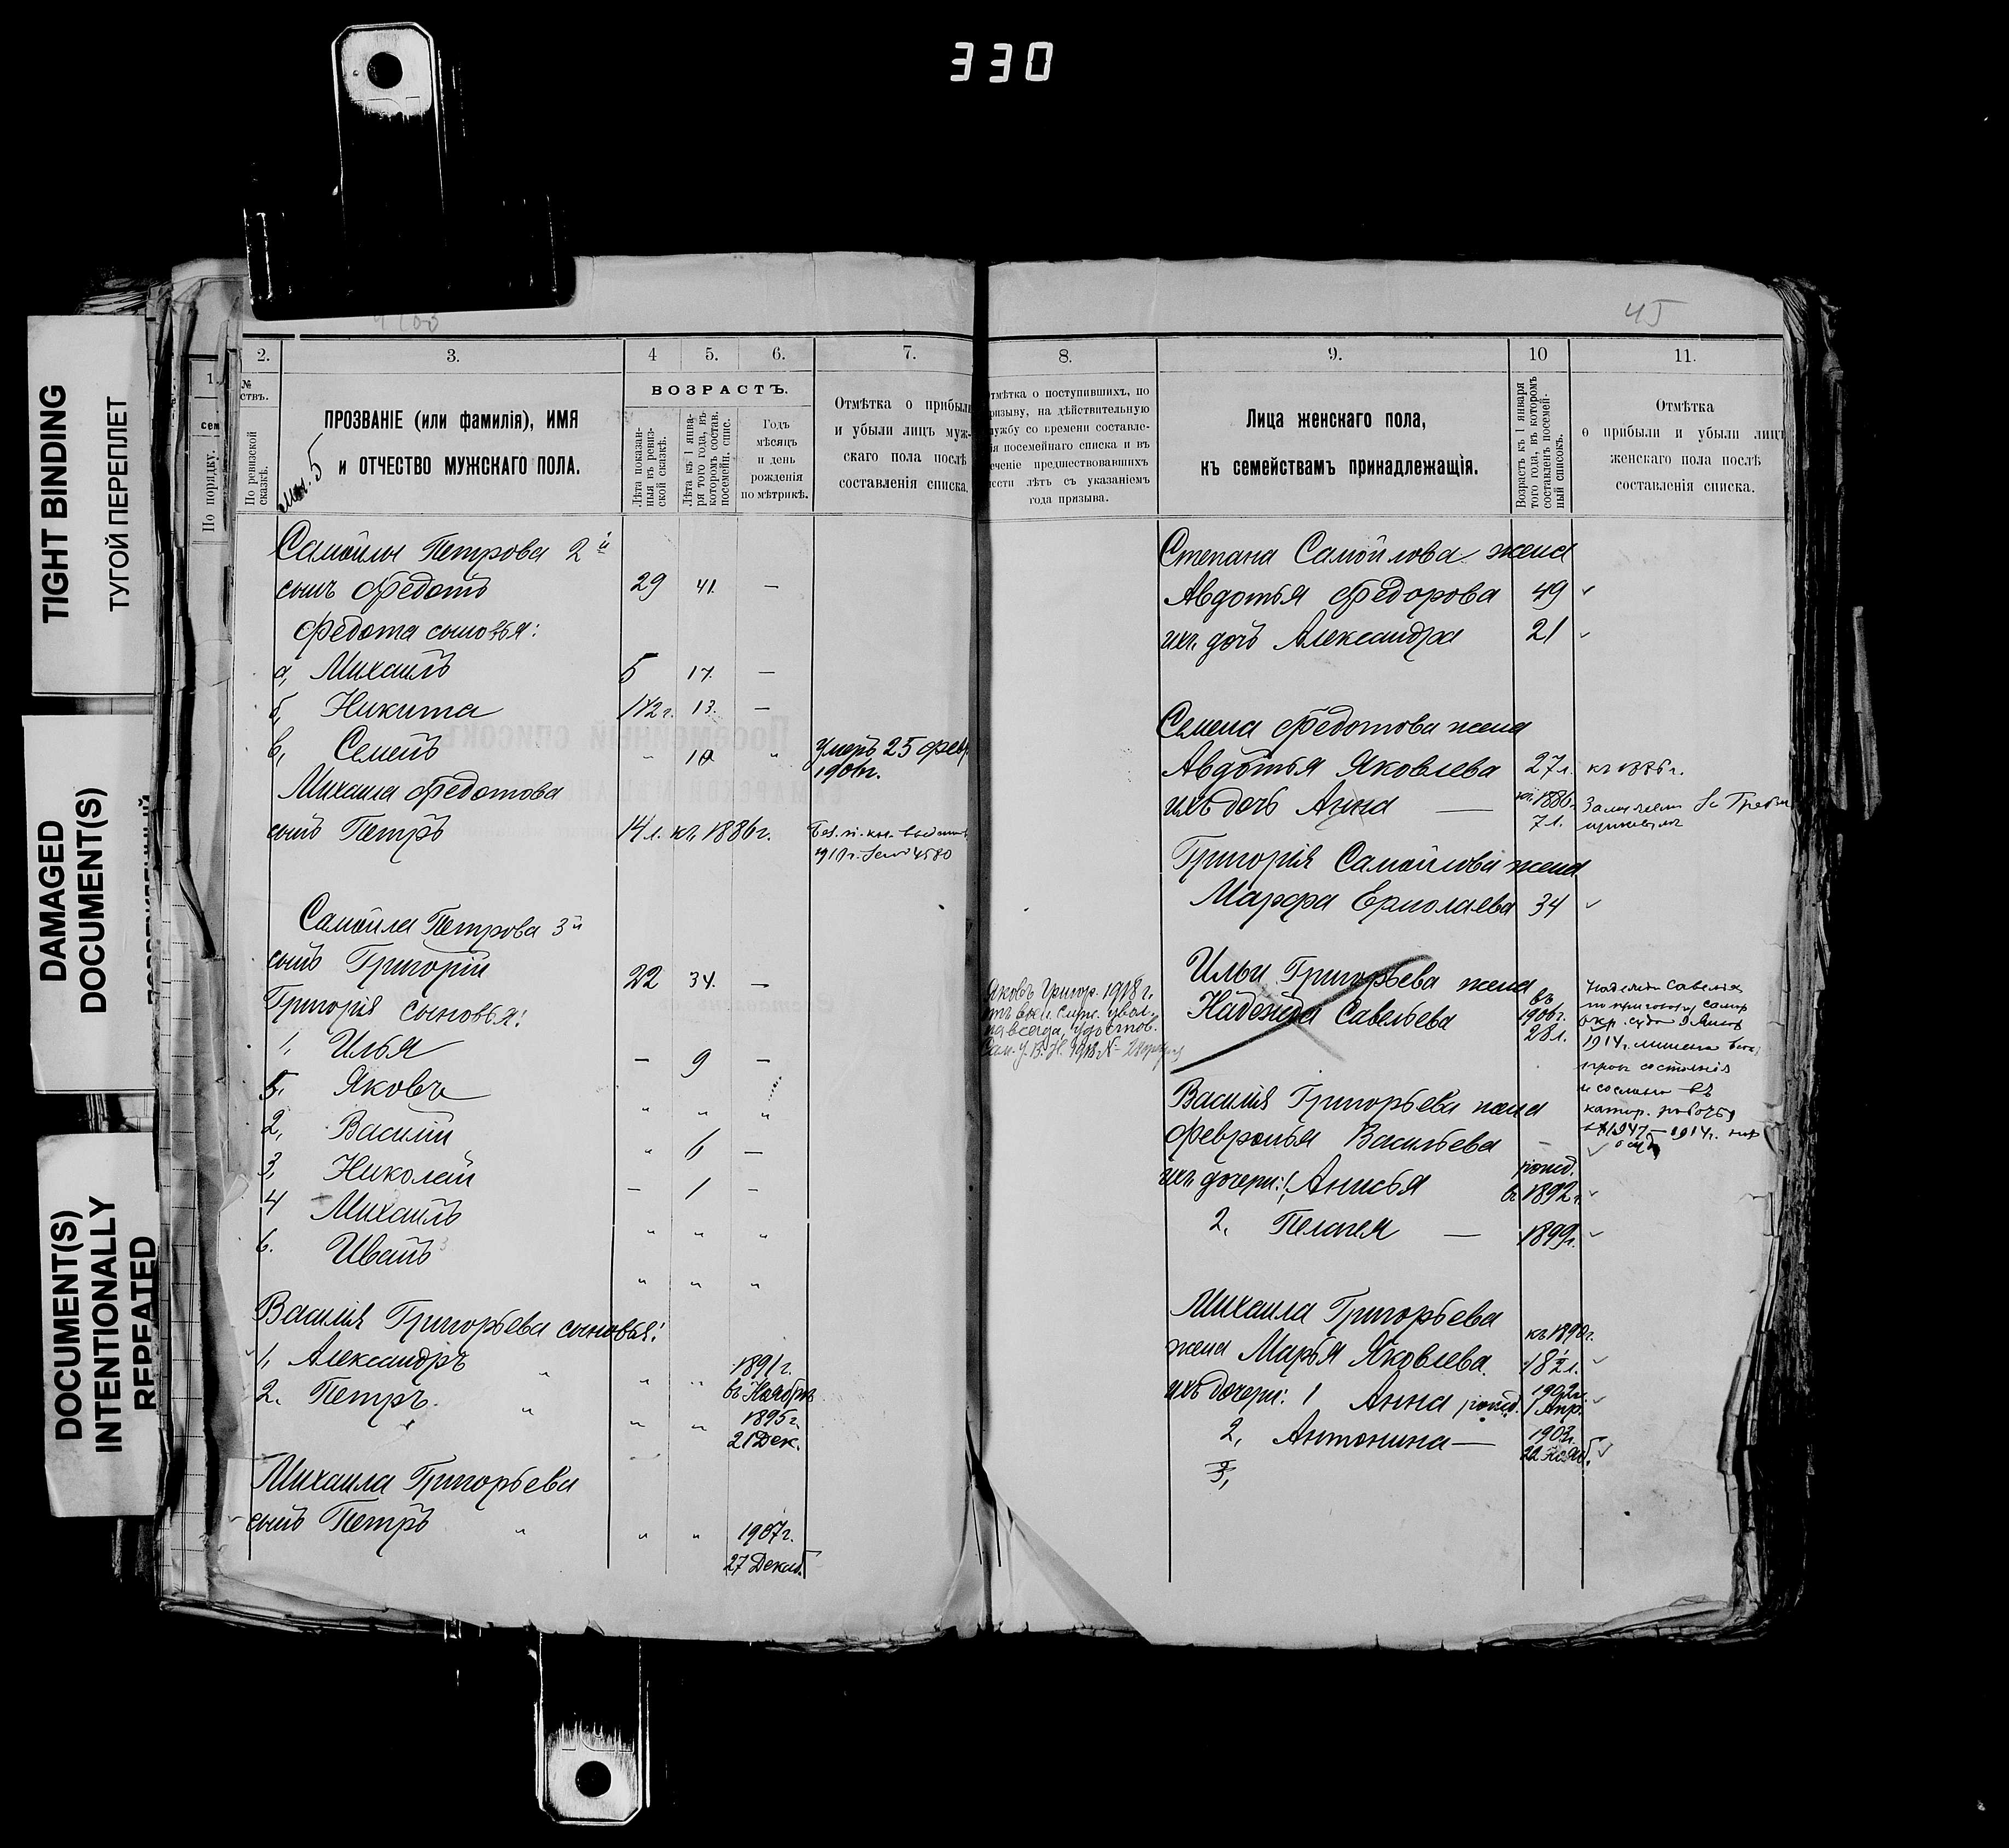 330
TIGHT BINDING
ТУГОЙ ПЕРЕПЛЕТ
DAMAGED
DOCUMENT(S)
DOCUMENT(S)
INTENTIONALLY
REPEATED
45
1.
2.
3.
4
5.
6.
7.
По порядку.
№
ствъ.
По ревизской
сказкѣ.
лит. 5
ПРОЗВАНІЕ (или фамилія), ИМЯ
и ОТЧЕСТВО МУЖСКАГО ПОЛА.
ВОЗРАСТЪ.
Лѣта показан-
ныя въ ревиз-
ской сказкѣ.
Лѣта къ 1 янва-
ря того года, въ
которомъ состав.
посемейн. спис.
Годъ
мѣсяцъ
и день
рожденія
по мѣтрикѣ.
Отмѣтка о прибыли
и убыли лицъ муж-
скаго пола послѣ
составленія списка.
Самойлы Петрова 2й
сынъ Федотъ 29 41. —
Федота сыновья:
а, Михаилъ 5 17. —
б, Никита 1½ г. 13. —
в, Семенъ - 10 "
Умеръ 25 февр
1901г.
Михаила Федотова
сынъ Петръ 14 л. къ 1886 г.
Самойла Петрова 3й
сынъ Григорій 22 34. —
Григорія сыновья:
1, Илья — 9 —
5. Яковъ " " "
2, Василій " 6 —
3, Николай — 1 —
4 Михаилъ " " "
6. Иванъ " " "
Василія Григорьева сыновья:
1, Александръ " " " 1891 г.
въ Ноябрѣ
2. Петръ. " " " 1895 г.
21 Дек.
Михаила Григорьева
сынъ Петръ " " " 1907 г.
27 Декаб.
8.
9.
10
11.
тмѣтка о поступившихъ, по
ризыву, на дѣйствительную
ужбу со времени составле-
ія посемейнаго списка и въ
еченіе предшествовавшихъ
ести лѣтъ съ указаніемъ
года призыва.
Лица женскаго пола,
къ семействамъ принадлежащія.
Возрастъ къ 1 января
того года, въ которомъ
составленъ посемей-
ный списокъ.
Отмѣтка
о прибыли и убыли лицъ
женскаго пола послѣ
составленія списка.
Степана Самойлова жена
Авдотья Федорова 49
ихъ дочь Александра 21
Семена Федотова жена
Авдотья Яковлева 27 л. къ 1886 г.
ихъ дочь Анна — къ 1886 г.
7 л.
Григорія Самойлова жена
Марфа Ермолаева 34
Яковъ Григор. 1918 г.
навсегда, удостов.
Ильи Григорьева жена
Надежда Савельева
въ
1906 г.
28 л.
Надежда Савельева
по приговору Самар
окр. суда 9
1914 г. лишена всех
прав состояния
и сослана въ
катор. работы
Василія Григорьева жена
Февронья Васильева —
ихъ дочери: 1, Анисья рожд.
въ 1892 г.
2. Пелагея — 1899 г.
Михаила Григорьева
жена Марья Яковлева. къ 1890 г.
18½ л.
ихъ дочери: 1 Анна рожд. 1902 г.
1 Апр.
2, Антонина — 1903 г.
22 Нояб.
3,